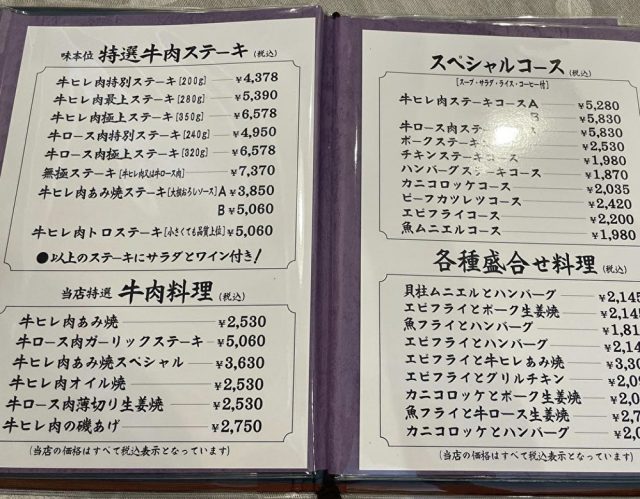 味本位 特選牛肉ステーキ(税込)
牛ヒレ肉特別ステーキ[200g] ¥4,378
牛ヒレ肉最上ステーキ[280g] ¥5,390
牛ヒレ肉極上ステーキ[350g] ¥6,578
牛ロース肉特別ステーキ[240g] ¥4,950
牛ロース肉極上ステーキ[320g] ¥6,578
無極ステーキ[牛ヒレ肉又は牛ロース肉] ¥7,370
牛ヒレ肉あみ焼ステーキ[大根おろしソース]A ¥3,850
B ¥5,060
牛ヒレ肉トロステーキ[小さくても品質上位] ¥5,060
●以上のステーキにサラダとワイン付き!
当店特選 牛肉料理(税込)
牛ヒレ肉あみ焼 ¥2,530
牛ロース肉ガーリックステーキ ¥5,060
牛ヒレ肉あみ焼スペシャル ¥3,630
牛ヒレ肉オイル焼 ¥2,530
牛ロース肉薄切り生姜焼 ¥2,530
牛ヒレ肉の磯あげ ¥2,750
(当店の価格はすべて税込表示となっています)
スペシャルコース(税込)
[スープ・サラダ・ライス・コーヒー付]
牛ヒレ肉ステーキコースA ¥5,280
B ¥5,830
牛ロース肉ステーキコース ¥5,830
ポークステーキコース ¥2,530
チキンステーキコース ¥1,980
ハンバーグステーキコース ¥1,870
カニコロッケコース ¥2,035
ビーフカツレツコース ¥2,420
エビフライコース ¥2,200
魚ムニエルコース ¥1,980
各種盛合せ料理(税込)
貝柱ムニエルとハンバーグ ¥2,145
エビフライとポーク生姜焼 ¥2,145
魚フライとハンバーグ
エビフライとハンバーグ
エビフライと牛ヒレあみ焼
エビフライとグリルチキン
カニコロッケとポーク生姜焼
魚フライと牛ロース生姜焼
カニコロッケとハンバーグ
(当店の価格はすべて税込表示となっています)